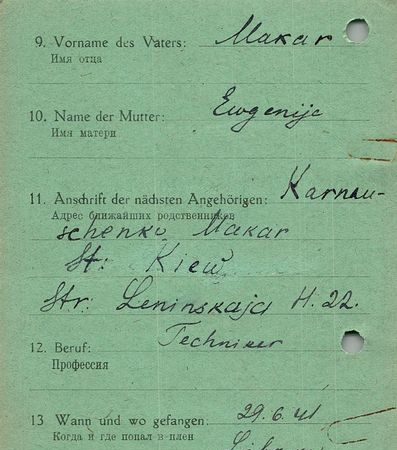 9. Vorname des Vaters: Makar
Имя отца
10. Name der Mutter: Ewgenije
Имя матери
11. Anschrift der nächsten Angehörigen: Karnau-
Адрес ближайших родственников
schenko Makar
St: Kiew
Str: Leninskaja H. 22.
12. Beruf: Techniker
Профессия
13 Wann und wo gefangen: 29.6.41
Когда и где попал в плен